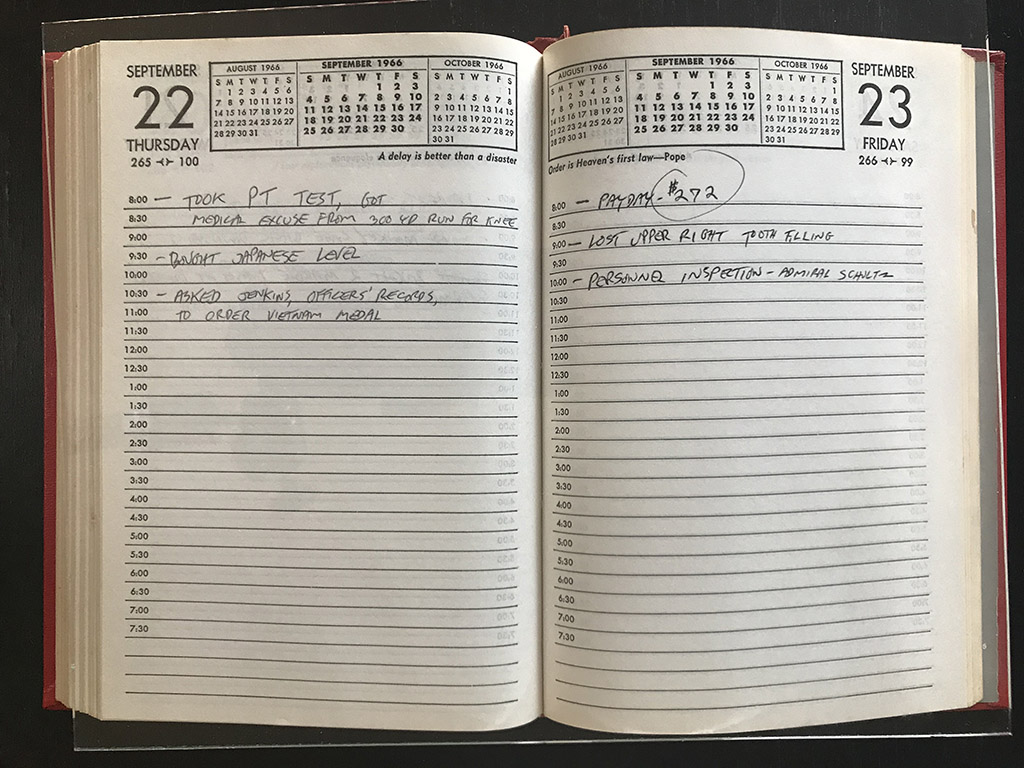 SEPTEMBER
22
THURSDAY
265 100
AUGUST 1966
S M T W T F S
1 2 3 4 5 6
7 8 9 10 11 12 13
14 15 16 17 18 19 20
21 22 23 24 25 26 27
28 29 30 31
SEPTEMBER 1966
S M T W T F S
1 2 3
4 5 6 7 8 9 10
11 12 13 14 15 16 17
18 19 20 21 22 23 24
25 26 27 28 29 30
OCTOBER 1966
S M T W T F S
1
2 3 4 5 6 7 8
9 10 11 12 13 14 15
16 17 18 19 20 21 22
23 24 25 26 27 28 29
30 31
A delay is better than a disaster
8:00 — TOOK PT TEST, GOT
8:30 MEDICAL EXCUSE FROM 300 YD RUN FOR KNEE
9:00
9:30 - BOUGHT JAPANESE LEVEL
10:00
10:30 - ASKED JENKINS, OFFICERS' RECORDS,
11:00 TO ORDER VIETNAM MEDAL
11:30
12:00
12:30
1:00
1:30
2:00
2:30
3:00
3:30
4:00
4:30
5:00
5:30
6:00
6:30
7:00
7:30
AUGUST 1966
S M T W T F S
1 2 3 4 5 6
7 8 9 10 11 12 13
14 15 16 17 18 19 20
21 22 23 24 25 26 27
28 29 30 31
SEPTEMBER 1966
S M T W T F S
1 2 3
4 5 6 7 8 9 10
11 12 13 14 15 16 17
18 19 20 21 22 23 24
25 26 27 28 29 30
OCTOBER 1966
S M T W T F S
1
2 3 4 5 6 7 8
9 10 11 12 13 14 15
16 17 18 19 20 21 22
23 24 25 26 27 28 29
30 31
SEPTEMBER
23
FRIDAY
266 99
Order is Heaven's first law—Pope
8:00 — PAYDAY - $272
8:30
9:00 — LOST UPPER RIGHT TOOTH FILLING
9:30
10:00 — PERSONNEL INSPECTION - ADMIRAL SCHULTZ
10:30
11:00
11:30
12:00
12:30
1:00
1:30
2:00
2:30
3:00
3:30
4:00
4:30
5:00
5:30
6:00
6:30
7:00
7:30